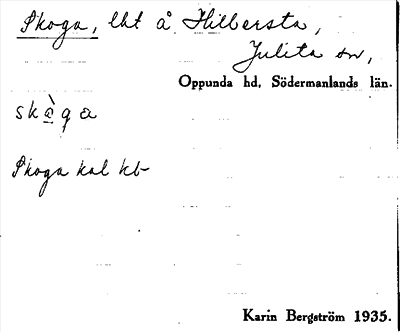 Skoga, lht å Hilbersta,
Julita sn,
Oppunda hd, Södermanlands län.
skà̱ga
Skoga kal kb
Karin Bergström 1935.